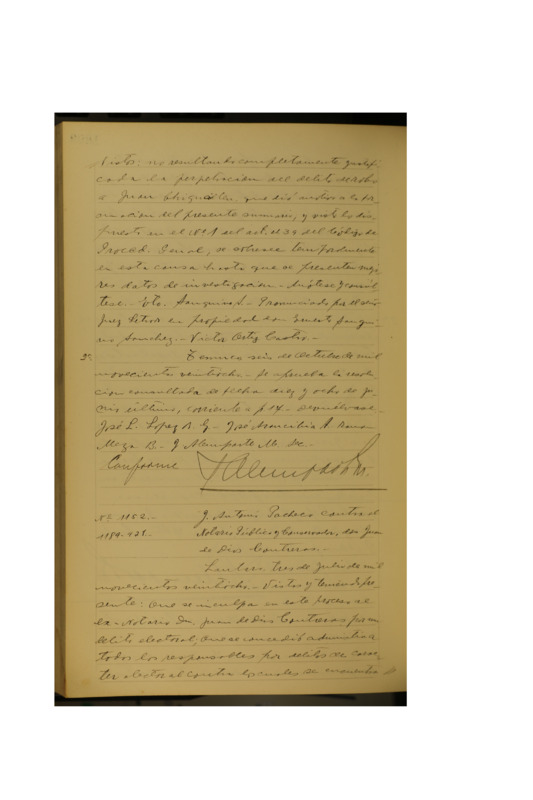 Vistos: no resultando completamente justifi-
cada la perpetración del delito de robo
a Juan que dió motivo a la for-
mación del presente sumario, y visto lo dis-
puesto en el del art. el 39 del Código de
Proced. Penal, se sobresee temporalmente
en esta causa hasta que se presenten mejo-
res datos de investigación.- Anótese y consúl-
tese.- Sanguino S.- Pronunciado por el señor
Juez Letrado en propiedad don Ernesto Sangui-
no Sanchez.- Victor Ortiz Castro.-
25.- Temuco seis de Octubre de mil
novecientos veintiocho.- Se aprueba la resolu-
ción consultada de fecha diez y ocho de Ju-
nio último, corriente a f 14.- Devuélvase.-
José L. Lopez R G.- José Arancibia A Ramon
Meza B.- J Alemparte M.
Conforme
N° 1152.- J. Antonio Pacheco contra el
Notario Público y Conservador, don Juan
de Dios Contreras.-
tres de Julio de mil
novecientos veintiocho.- Vistos y teniendo pre-
sente: Que se inculpa en este proceso al
ex-Notario Dn. Juan de Dios Contreras por un
delito electoral; Que se concedió amnistía a
todos los responsables por delitos de carac-
ter electoral contra los cuales se encuentra